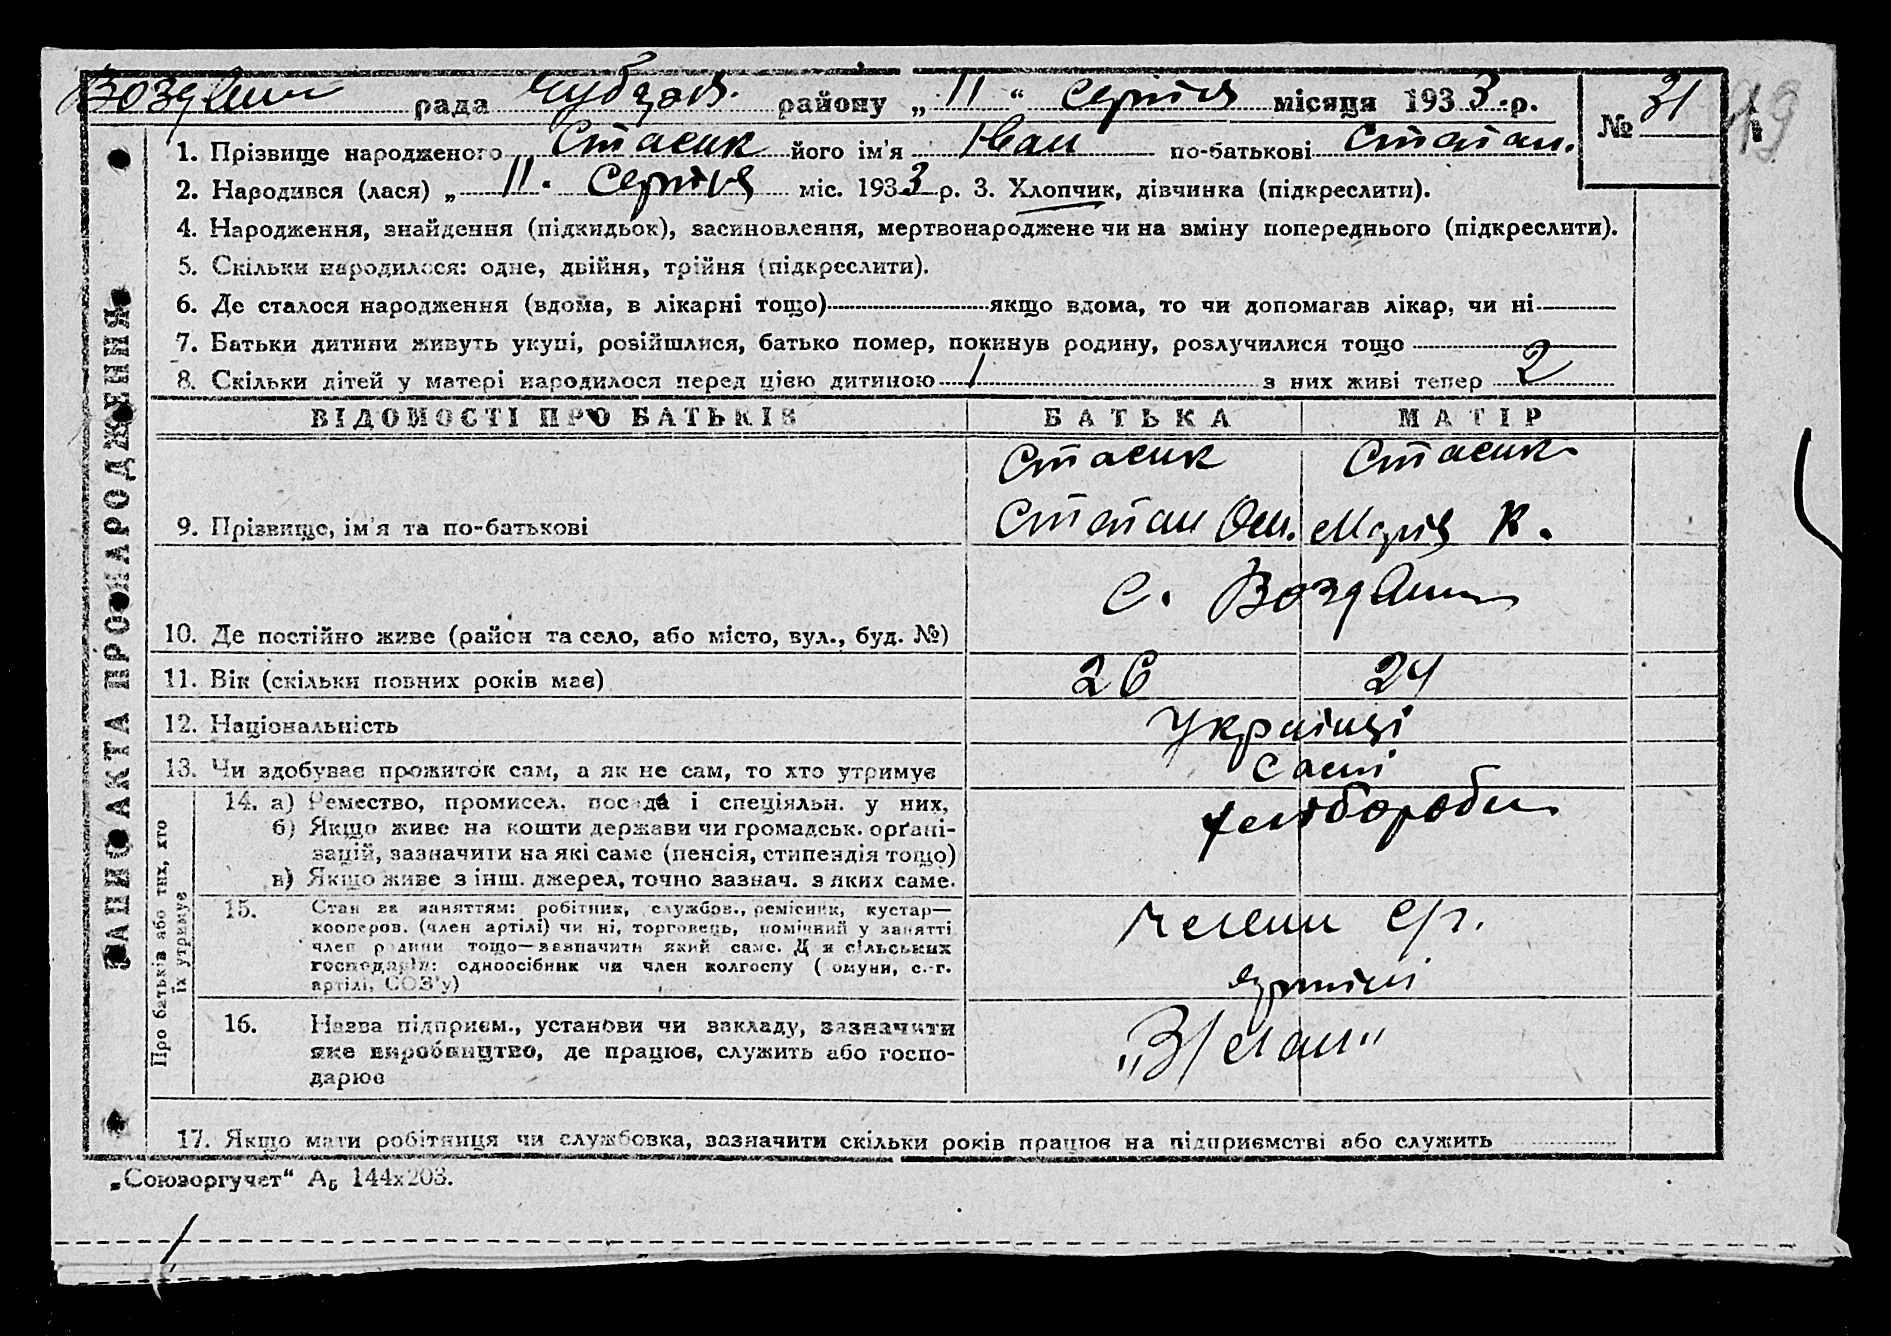 Воздвиж рада Чубарів. району „ 11 “ серпня місяця 1933.-р. № 31
1. Прізвище народженого Стасик його ім'я Іван по-батькові Степан.
2. Народився (лася) „ 11. серпня міс. 1933 р. 3. Хлопчик, дівчинка (підкреслити).
4. Народження, знайдення (підкидьок), засиновлення, мертвонароджене чи на зміну попереднього (підкреслити).
5. Скільки народилося: одне, двійня, трійня (підкреслити).
6. Де сталося народження (вдома, в лікарні тощо) якщо вдома, то чи допомагав лікар, чи ні
7. Батьки дитини живуть укупі, розійшлися, батько помер, покинув родину, розлучилися тощо
8. Скільки дітей у матері народилося перед цією дитиною 1 з них живі тепер 2
ЗАПИС АКТА ПРО НАРОДЖЕННЯ
ВІДОМОСТІ ПРО БАТЬКІВ БАТЬКА МАТІР
Стасик Стасик
9. Прізвище, ім'я та по-батькові Степан Марія К.
с. Воздвиж
10. Де постійно живе (район та село, або місто, вул., буд. №)
11. Вік (скільки повних років має) 26 24
12. Національність Українці
13. Чи здобуває прожиток сам, а як не сам, то хто утримує Самі
Про батьків або тих, хто їх утримує
14. а) Ремество, промисел, посада і спеціяльн. у них, хлібороби
б) Якщо живе на кошти держави чи громадськ. орґані-
зацій, зазначити на які саме (пенсія, стипендія тощо)
в) Якщо живе з інш. джерел, точно зазнач. з яких саме.
15. Стан за заняттям: робітник, службов., ремісник, кустар—
кооперов. (член артілі) чи ні, торговець, помічний у занятті
член родини тощо—зазначити який саме. Для сільських
господарів: одноосібник чи член колгоспу (комуни, с.-г.
артілі, СОЗ'у) члени с/г. артілі
16. Назва підприєм., установи чи закладу, зазначити
яке виробництво, де працює, служить або госпо-
дарює
17. Якщо мати робітниця чи службовка, зазначити скільки років працює на підприємстві або служить
„Союзоргучет“ А₅ 144х203.